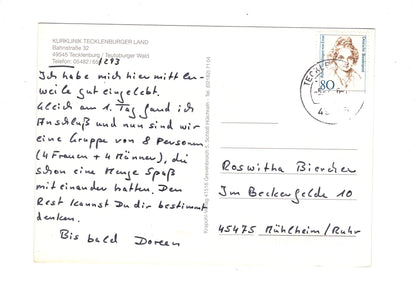 KURKLINIK TECKLENBURGER LAND
Bahnstraße 32
49545 Tecklenburg / Teutoburger Wald
Telefon: 05482/65/293
Ich habe mich hier mittler-
weile gut eingelebt.
Gleich am 1. Tag fand ich
Anschluß und nun sind wir
eine Gruppe von 8 Personen
(4 Frauen + 4 Männer), die
schon eine Menge Spaß
miteinander hatten. Den
Rest kannst Du dir bestimmt
denken.
Bis bald Doreen
Deutsche Bundespost
80
Roswitha Biercher
Im Beckerfelde 10
45475 Mühlheim/Ruhr